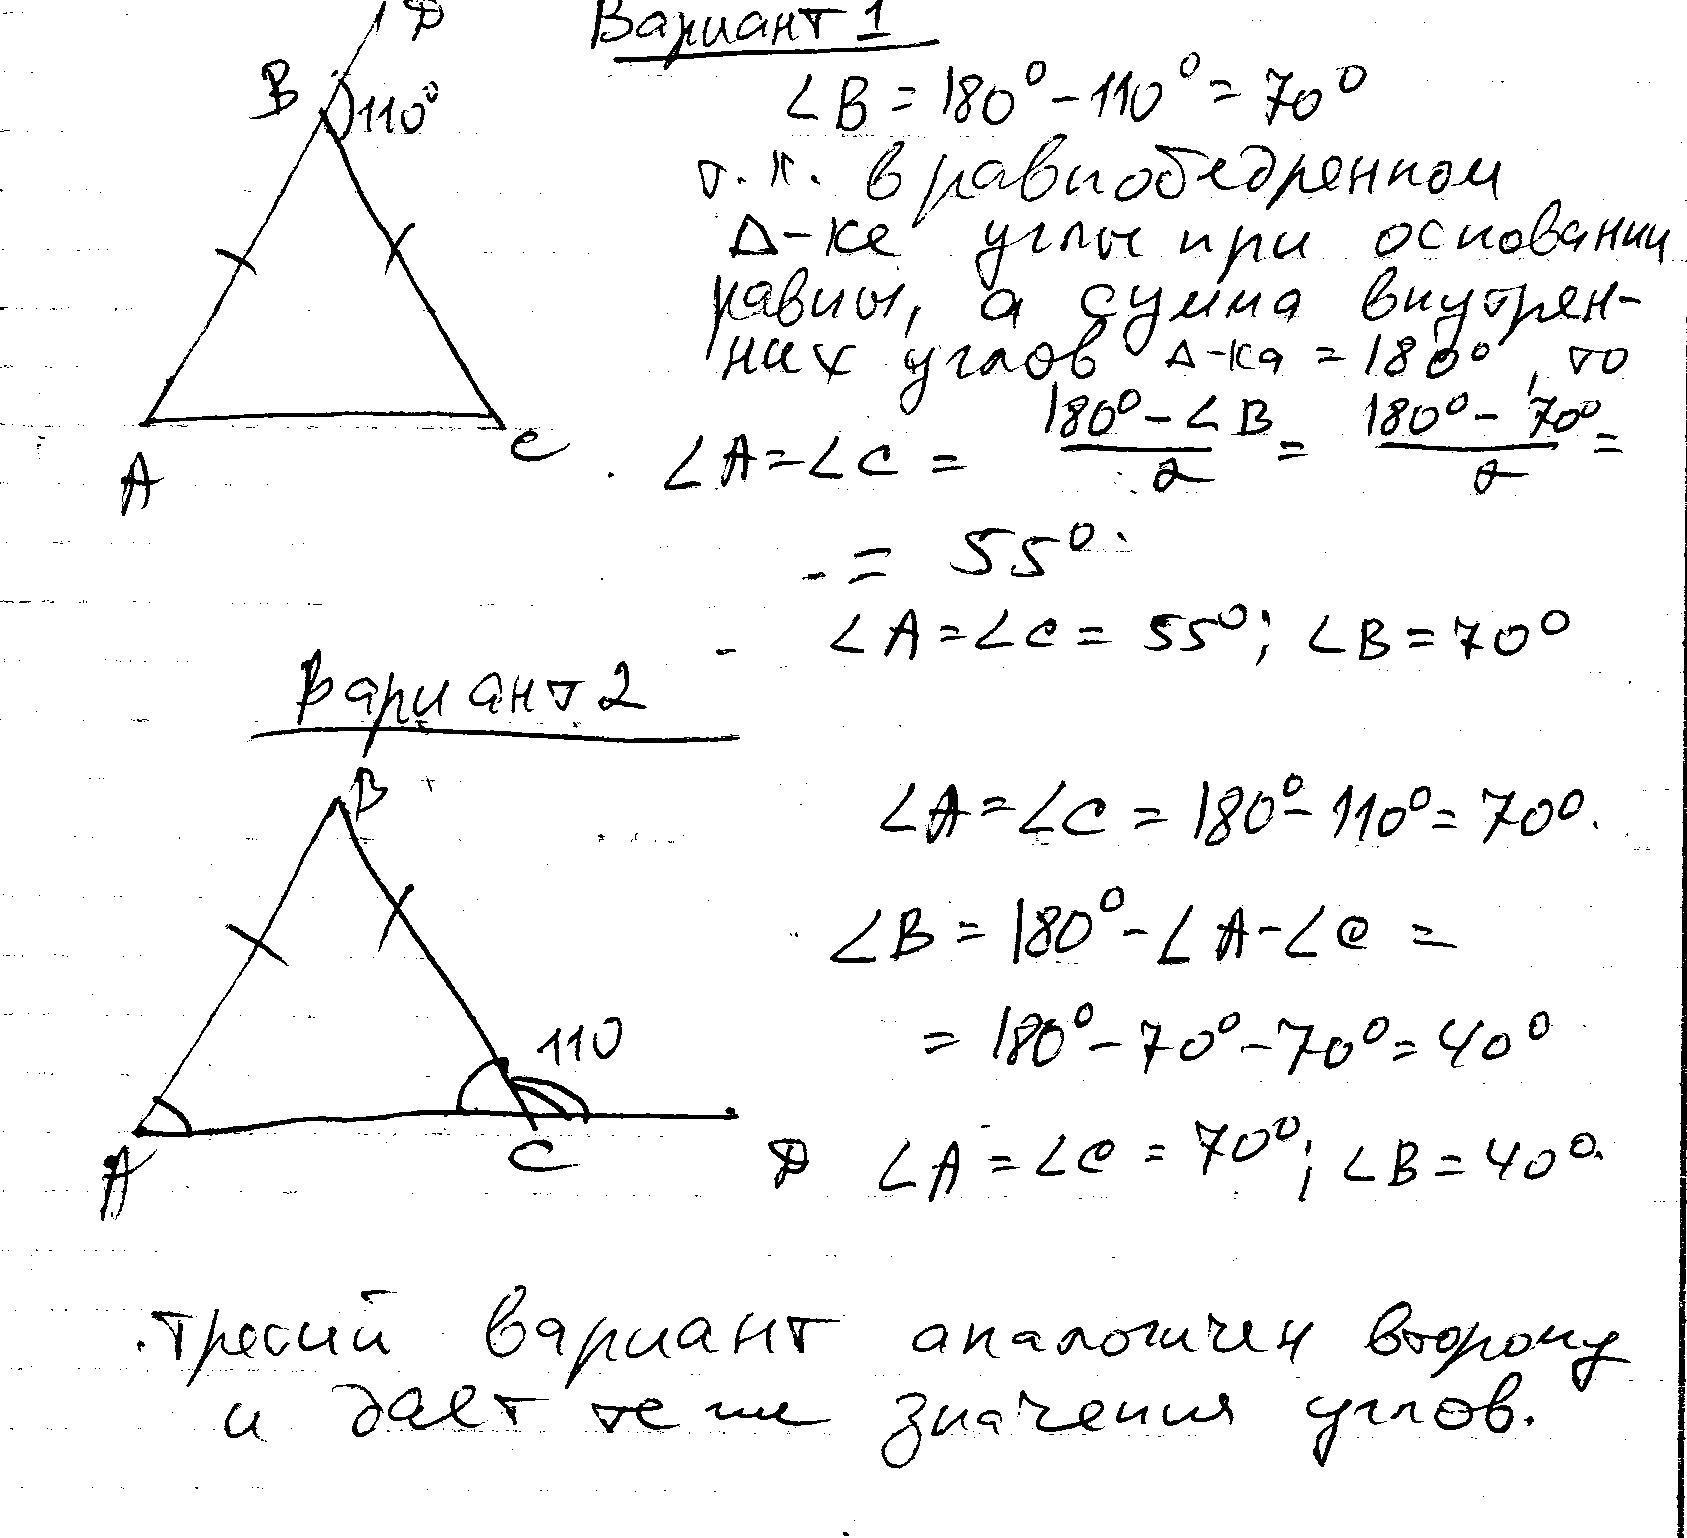 D
Вариант 1
B
110°
∠B = 180° - 110° = 70°
т.к. в равнобедренном
Δ-ке углы при основании
равны, а сумма внутрен-
них углов Δ-ка = 180°, то
∠A = ∠C = (180° - ∠B)/2 = (180° - 70°)/2 =
A
C
= 55°.
∠A = ∠C = 55°; ∠B = 70°
Вариант 2
B
∠A = ∠C = 180° - 110° = 70°.
∠B = 180° - ∠A - ∠C =
110
= 180° - 70° - 70° = 40°
A
C
D
∠A = ∠C = 70°; ∠B = 40°.
третий вариант аналогичен второму
и дает те же значения углов.